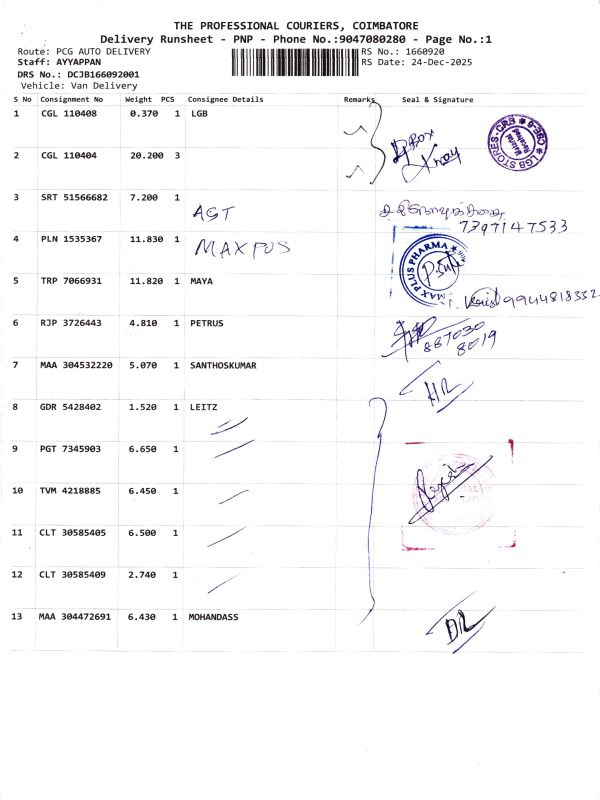 THE PROFESSIONAL COURIERS, COIMBATORE
Delivery Runsheet - PNP - Phone No.:9047080280 - Page No.:1
Route: PCG AUTO DELIVERY RS No.: 1660920
Staff: AYYAPPAN RS Date: 24-Dec-2025
DRS No.: DCJB166092001
Vehicle: Van Delivery
S No Consignment No Weight PCS Consignee Details Remarks Seal & Signature
1 CGL 110408 0.370 1 LGB
LGB STORES-GRB CBE-6
Material Received
2 CGL 110404 20.200 3
3 SRT 51566682 7.200 1 AST
7397147533
4 PLN 1535367 11.830 1 MAXPUS
MAX PLUS PHARMA
5 TRP 7066931 11.820 1 MAYA
9944818332
6 RJP 3726443 4.810 1 PETRUS
887030
8019
7 MAA 304532220 5.070 1 SANTHOSKUMAR
8 GDR 5428402 1.520 1 LEITZ
9 PGT 7345903 6.650 1
10 TVM 4218885 6.450 1
11 CLT 30585405 6.500 1
12 CLT 30585409 2.740 1
13 MAA 304472691 6.430 1 MOHANDASS